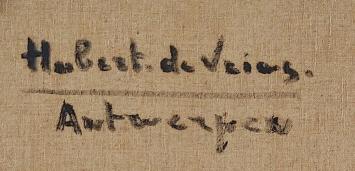 Hubert. de Vries.
Antwerpen